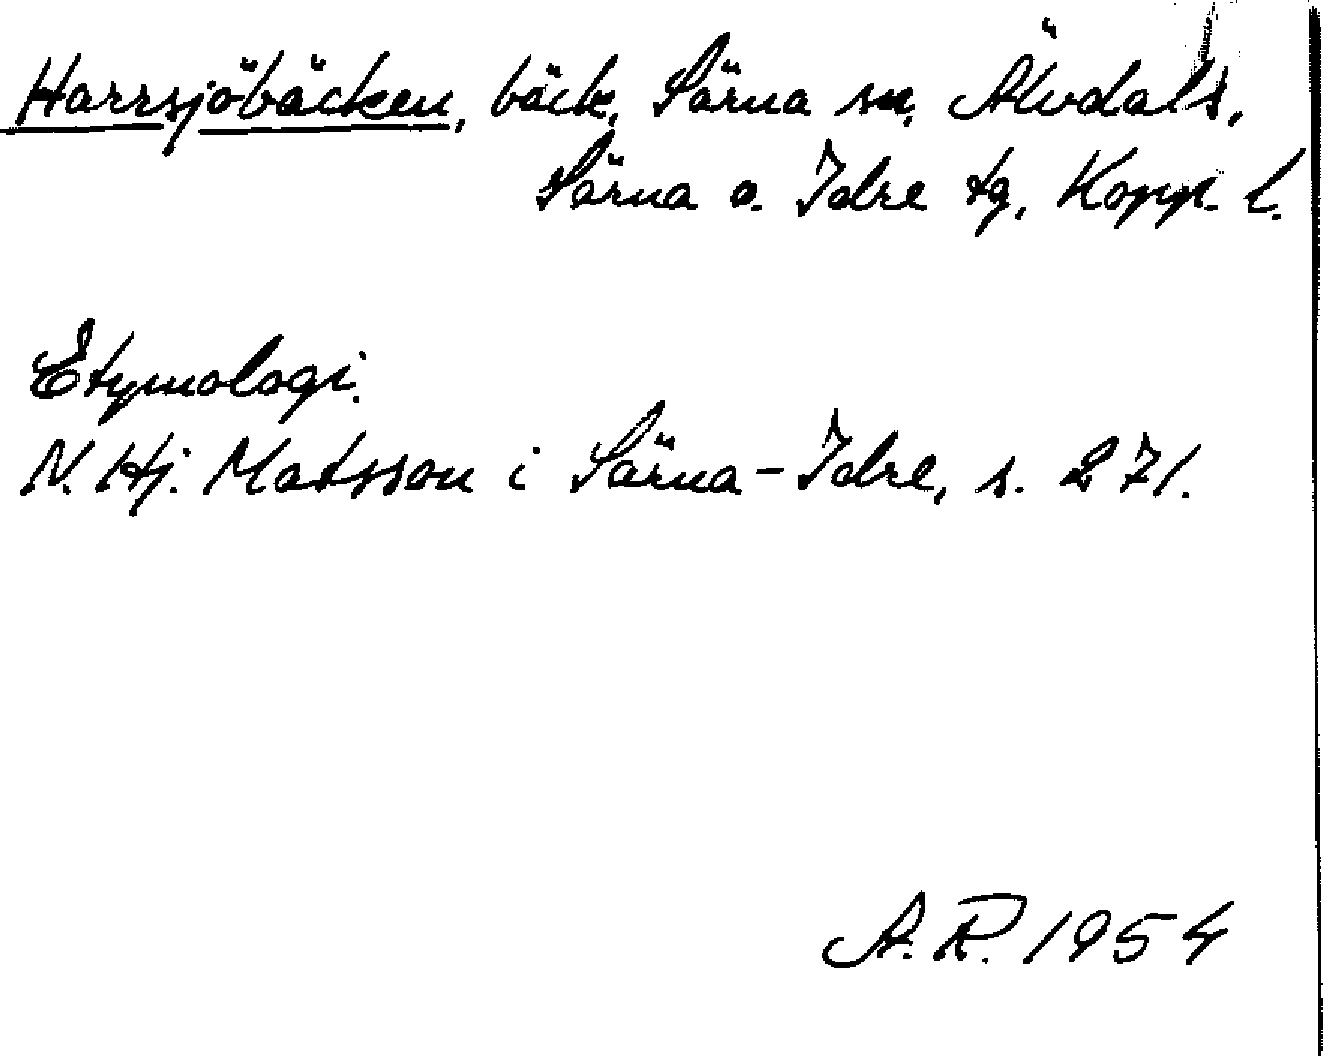 Harrsjöbäcken, bäck, Särna sn, Älvdals,
Särna o. Idre tg, Kopp. l.
Etymologi.
N. Hj. Matsson i Särna-Idre, s. 271.
A.R. 1954